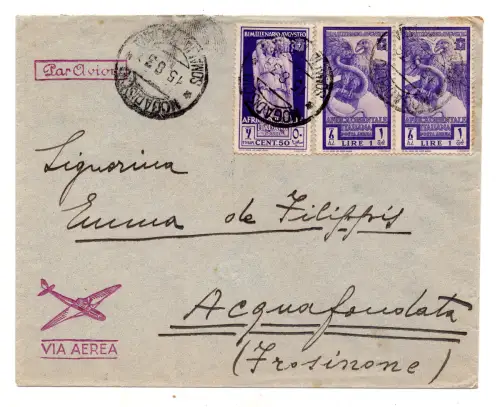 Par Avion
MOGADISCIO
15.8.3
BIMILLENARIO AVGVSTEO
CENT. 50
AFRICA ORIENTALE ITALIANA
LIRE 1
AFRICA ORIENTALE ITALIANA
LIRE 1
Signorina
Emma de Filippis
Acquafondata
(Frosinone)
VIA AEREA